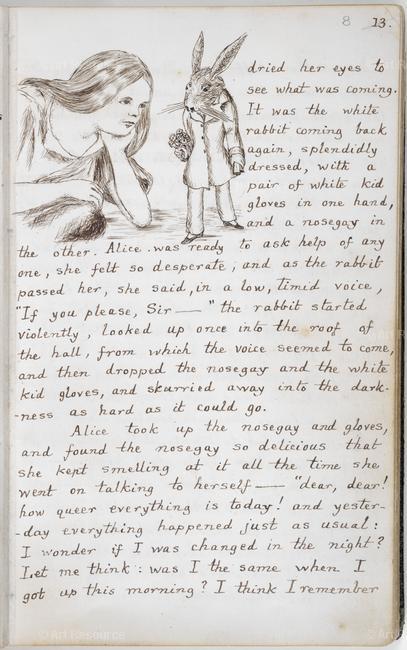 8 13.
dried her eyes to
see what was coming.
It was the white
rabbit coming back
again, splendidly
dressed, with a
pair of white kid
gloves in one hand,
and a nosegay in
the other. Alice was ready to ask help of any
one, she felt so desperate, and as the rabbit
passed her, she said, in a low, timid voice,
"If you please, Sir —" the rabbit started
violently, looked up once into the roof of
the hall, from which the voice seemed to come,
and then dropped the nosegay and the white
kid gloves, and skurried away into the dark-
-ness as hard as it could go.
Alice took up the nosegay and gloves,
and found the nosegay so delicious that
she kept smelling at it all the time she
went on talking to herself — "dear, dear!
how queer everything is today! and yester-
-day everything happened just as usual:
I wonder if I was changed in the night?
Let me think: was I the same when I
got up this morning? I think I remember
© Art Resource
© Art Resource